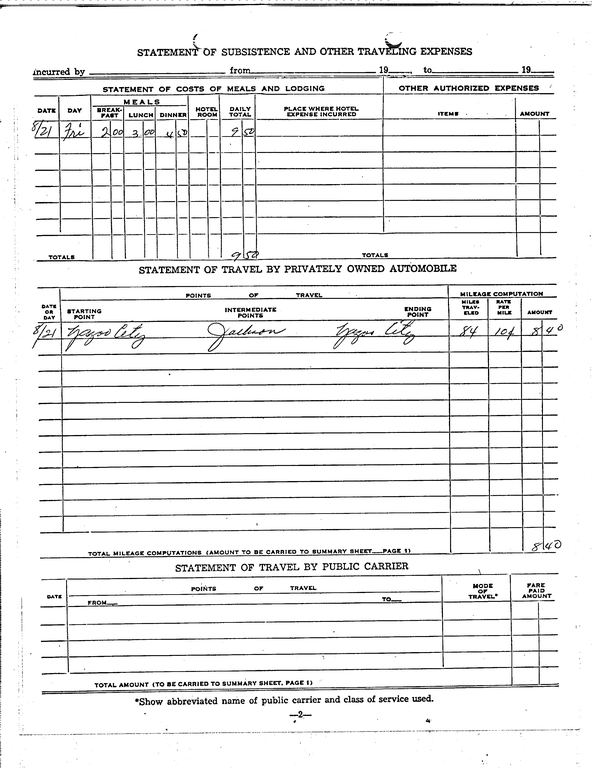 STATEMENT OF SUBSISTENCE AND OTHER TRAVELING EXPENSES
incurred by from 19 , to 19
STATEMENT OF COSTS OF MEALS AND LODGING OTHER AUTHORIZED EXPENSES
DATE DAY MEALS BREAK-FAST LUNCH DINNER HOTEL ROOM DAILY TOTAL PLACE WHERE HOTEL EXPENSE INCURRED ITEMS AMOUNT
8/21 Fri 2 00 3 00 4 50 9 50
TOTALS 9 50 TOTALS
STATEMENT OF TRAVEL BY PRIVATELY OWNED AUTOMOBILE
DATE OR DAY POINTS OF TRAVEL MILEAGE COMPUTATION
STARTING POINT INTERMEDIATE POINTS ENDING POINT MILES TRAV-ELED RATE PER MILE AMOUNT
8/21 Yazoo City Jackson Yazoo City 84 10¢ 8 40
TOTAL MILEAGE COMPUTATIONS (AMOUNT TO BE CARRIED TO SUMMARY SHEET PAGE 1) 8 40
STATEMENT OF TRAVEL BY PUBLIC CARRIER
DATE POINTS OF TRAVEL MODE OF TRAVEL* FARE PAID AMOUNT
FROM TO
TOTAL AMOUNT (TO BE CARRIED TO SUMMARY SHEET, PAGE 1)
*Show abbreviated name of public carrier and class of service used.
—2—